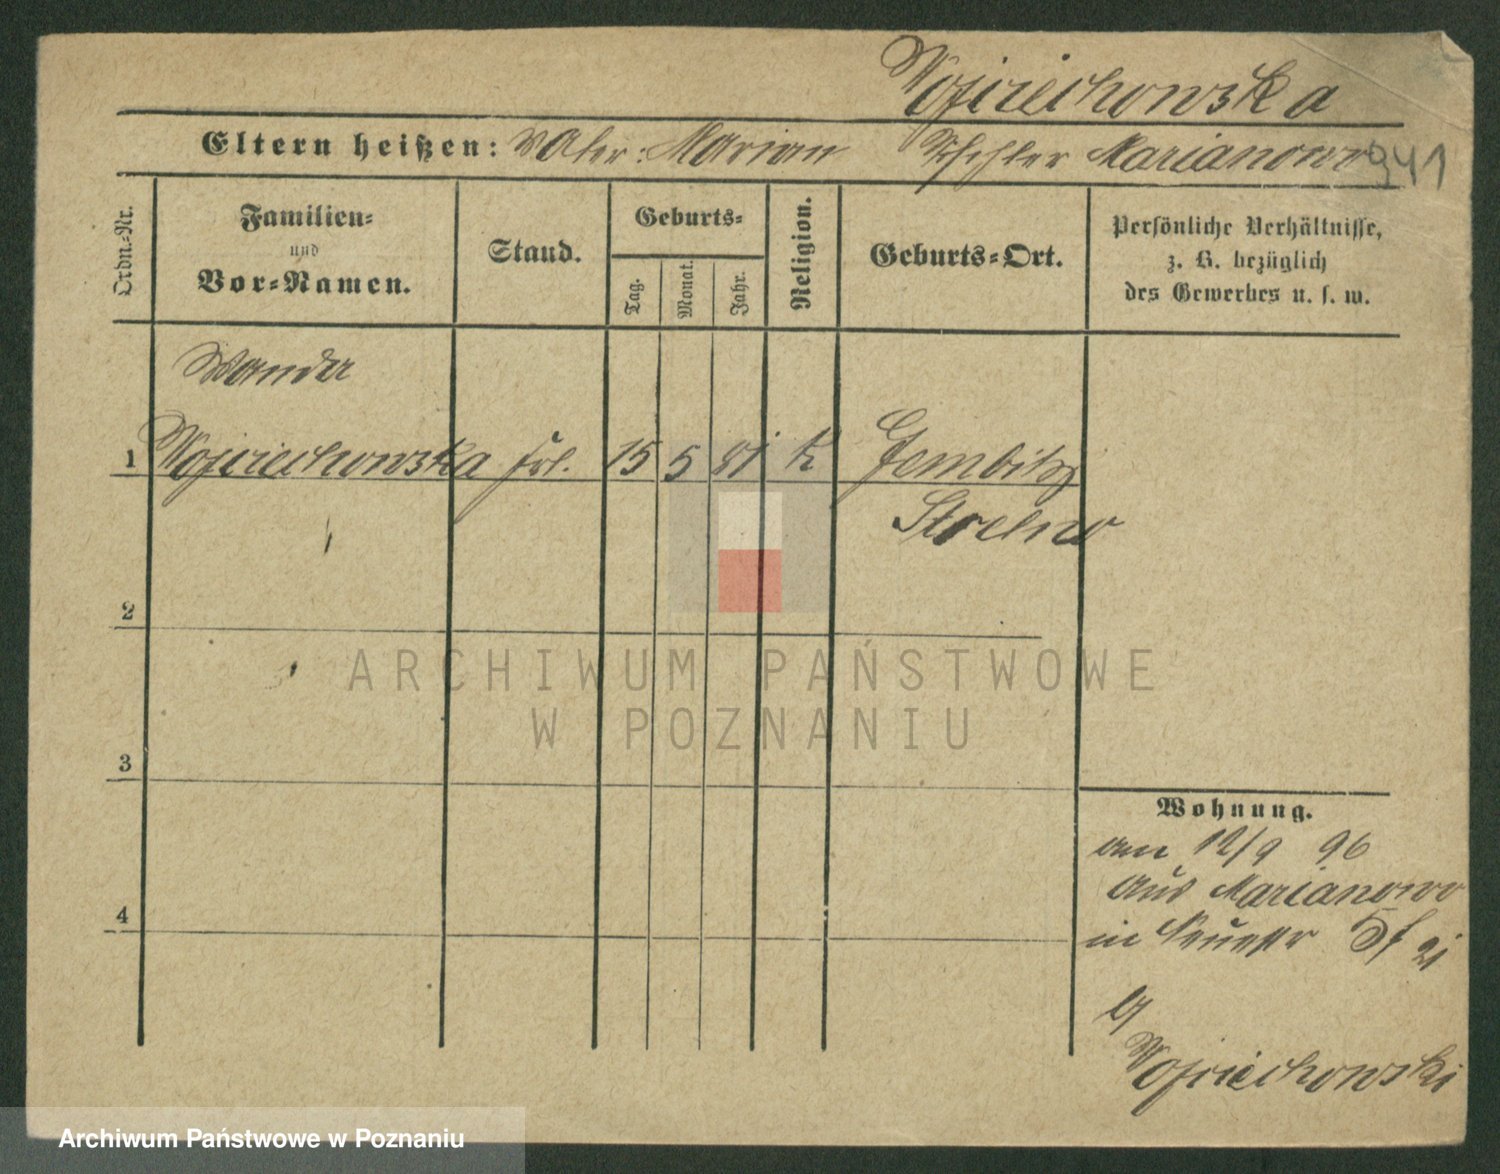 Wojciechowska
Eltern heißen: Vater: Marian Marianowo
941
Ordn.-Nr.
Familien-
und
Vor-Namen.
Stand.
Geburts-
Tag.
Monat.
Jahr.
Religion.
Geburts-Ort.
Persönliche Verhältnisse,
z. B. bezüglich
des Gewerbes u. s. w.
Wanda
1 Wojciechowska Frl. 15 5 81 k Gembitz
Strelno
2
ARCHIWUM PAŃSTWOWE
W POZNANIU
3
Wohnung.
an 12/9 96
aus Marianowo
4
in
b/
Wojciechowski
Archiwum Państwowe w Poznaniu